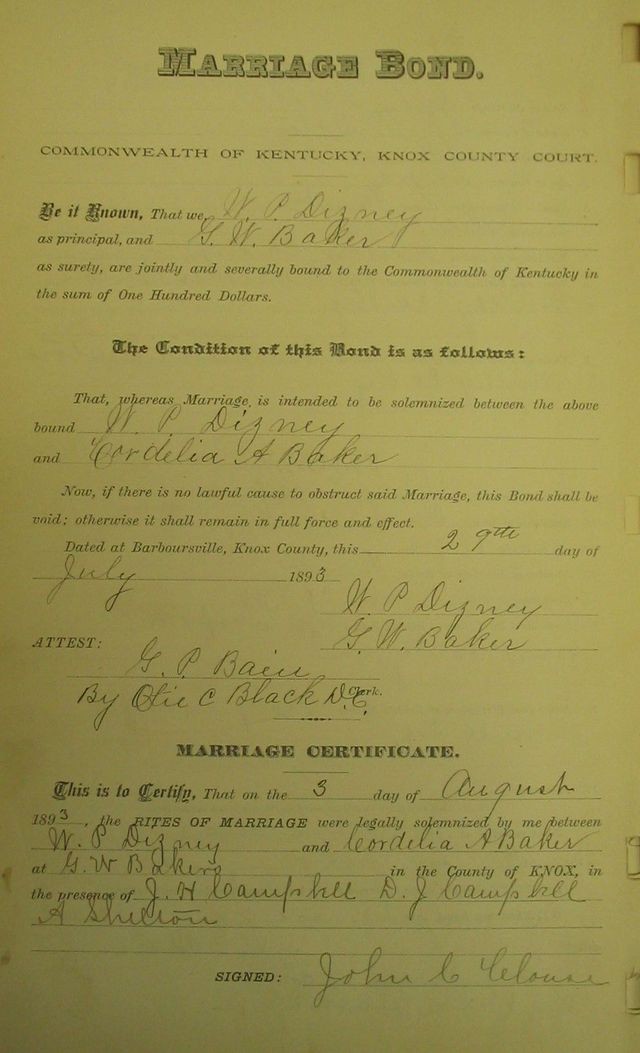 MARRIAGE BOND.
COMMONWEALTH OF KENTUCKY, KNOX COUNTY COURT.
Be it Known, That we, W. P. Dizney
as principal, and G. W. Baker
as surety, are jointly and severally bound to the Commonwealth of Kentucky in
the sum of One Hundred Dollars.
The Condition of this Bond is as follows:
That, whereas Marriage is intended to be solemnized between the above
bound W. P. Dizney
and Cordelia A Baker
Now, if there is no lawful cause to obstruct said Marriage, this Bond shall be
void; otherwise it shall remain in full force and effect.
Dated at Barboursville, Knox County, this 29th day of
July 1893
W. P Dizney
ATTEST: G. W. Baker
G. P.
By Olie C Black D.C. Clerk.
MARRIAGE CERTIFICATE.
This is to Certify, That on the 3 day of August
1893, the RITES OF MARRIAGE were legally solemnized by me between
W. P Dizney and Cordelia A Baker
at G. W Bakers in the County of KNOX, in
the presence of J. H Campbell D. J Campbell
A Shelton
SIGNED: John C Clouse